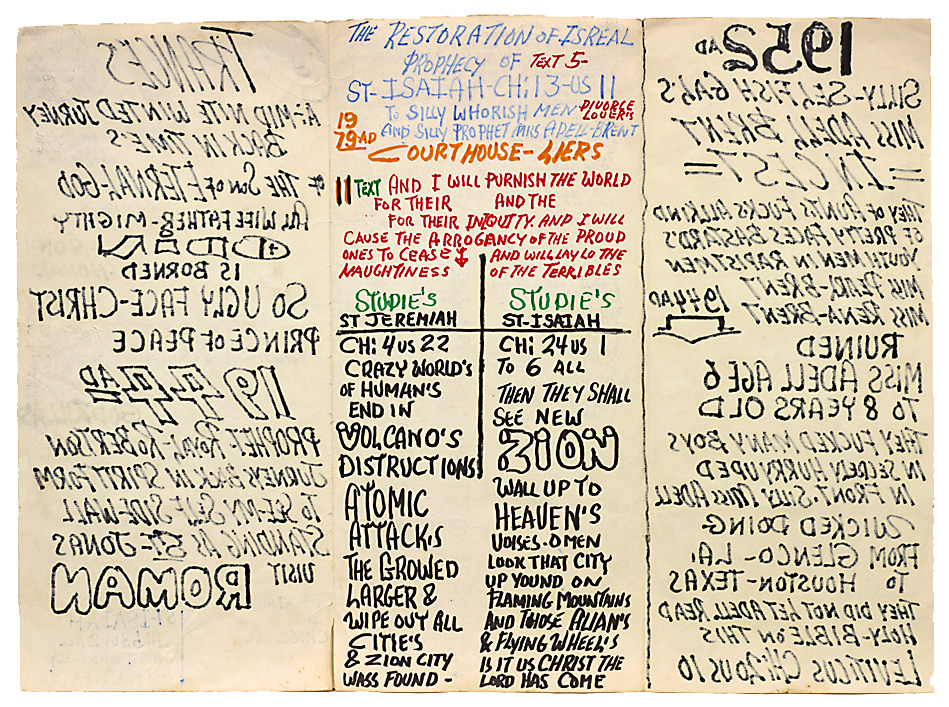 TRANCES
A-MID NITE WUNTED JURVEY
BACK IN TIME'S
OF THE SUN OF ETERNAL-GOD
AL WIFE FATHER-MIGHTY
IS BORNED
SO UGLY FACE-CHRIST
PRINCE OF PEACE
1944 AD
PROPHET-ROYAL-ROBERTSON
JURNEY BACK IN SPIRIT FORM
TO SEE MY SELF SIDE WALL
STANDING AS ST-JONAS
VISIT
ROMAN
THE RESTORATION OF ISREAL
PROPHECY OF TEXT 5-
ST-ISAIAH-CH: 13-US 11
TO SILLY WHORISH MEN DIVORCE LOVER'S
1979-AD AND SILLY PROPHET MRS ADELL-BRENT
COURTHOUSE-LIERS
11 TEXT AND I WILL PURNISH THE WORLD
FOR THEIR AND THE
FOR THEIR INQUITY. AND I WILL
CAUSE THE ARROGANCY OF THE PROUD
ONES TO CEASE AND WILL LAY LO THE
NAUGHTINESS OF THE TERRIBLES
STUDIE'S
ST JEREMIAH
CH: 4 US 22
CRAZY WORLD'S
OF HUMAN'S
END IN
VOLCANO'S
DISTRUCTIONS
ATOMIC
ATTACK.S
THE GROWED
LARGER &
WIPE OUT ALL
CITIE'S
& ZION CITY
WASS FOUND-
STUDIE'S
ST-ISAIAH
CH: 24 US 1
TO 6 ALL
THEN THEY SHALL
SEE NEW
ZION
WALL UP TO
HEAVEN'S
VOISES-OMEN
LOOK THAT CITY
UP YOUND ON
FLAMING MOUNTAINS
AND THOSE ALIAN'S
& FLYING WHEEL'S
IS IT US CHRIST THE
LORD HAS COME
1952 AD
SILLY-SELFISH GAL'S
MISS ADELL BRENT
=INCEST=
THEY OF AUNTS FUCKS ALLKIND
OF PRETTY FACES BASTARD'S
YOUTH MEN IN RAPISTMEN
MIS PEARL-BRENT
MISS RENA-BRENT 1944 AD
RUINED
MISS ADELL AGE 6
TO 8 YEARS OLD
THEY FUCKED MANY BOYS
IN SECREN HURRYUPED
IN FRONT-SILLY MISS ADELL
WICKED DOING
FROM GLENCO-LA.
TO HOUSTON-TEXAS
THEY DID NOT LET ADELL READ
HOLY-BIBLE ON THIS
LEVITICUS CH: 20 US 10